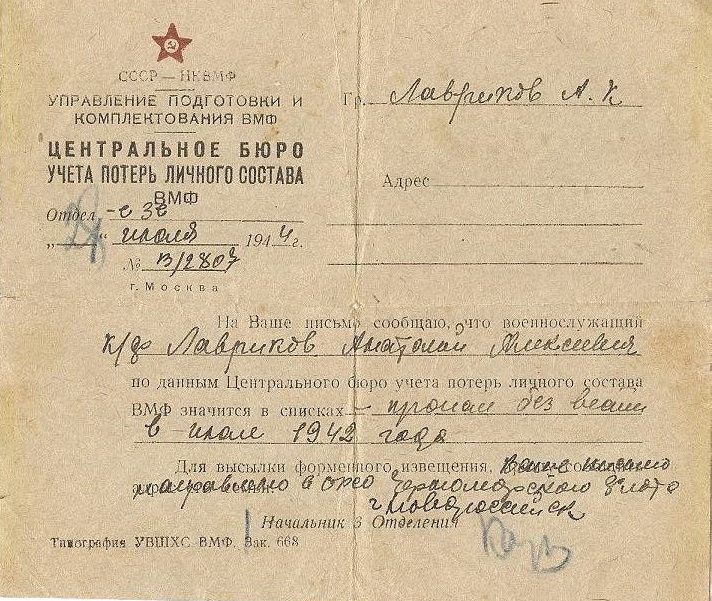 СССР — НКВМФ
УПРАВЛЕНИЕ ПОДГОТОВКИ И
КОМПЛЕКТОВАНИЯ ВМФ
ЦЕНТРАЛЬНОЕ БЮРО
УЧЕТА ПОТЕРЬ ЛИЧНОГО СОСТАВА
ВМФ
Отдел -е 3е
„ “ июля 1944 г.
№ В/2807
г. Москва
Гр. Лавриков А. К
Адрес
На Ваше письмо сообщаю, что военнослужащий
к/ф Лавриков Анатолий Алексеевич
по данным Центрального бюро учета потерь личного состава
ВМФ значится в списках — пропал без вести
в июле 1942 года
Для высылки форменного извещения, Ваше письмо
направлено в Черноморского флота
г Новороссийск
Начальник 3 Отделения
Типография УВШХС ВМФ. Зак. 668